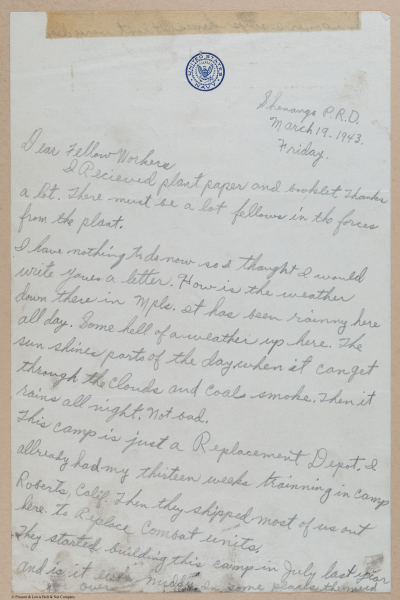 UNITED STATES NAVY
Shenango P.R.D.
March 19-1943.
Friday.
Dear Fellow Workers
I Recieved plant paper and booklet. Thanks
a lot. There must be a lot fellows in the forces
from the plant.
I have nothing to do now so I thought I would
write you a letter. How is the weather
down there in Mpls. it has been rainny here
all day. Some hell of a weather up here. The
sun shines parts of the day, when it can get
through the clouds and coals smoke. Then it
rains all night. Not bad.
This camp is just a Replacement Depot. I
allready had my thirteen weeks trainning in camp
Roberts, Calif. Then they shipped most of us out
here to Replace Combat units.
They started building this camp in July last year
and is it ever muddy. In some places the mud
over